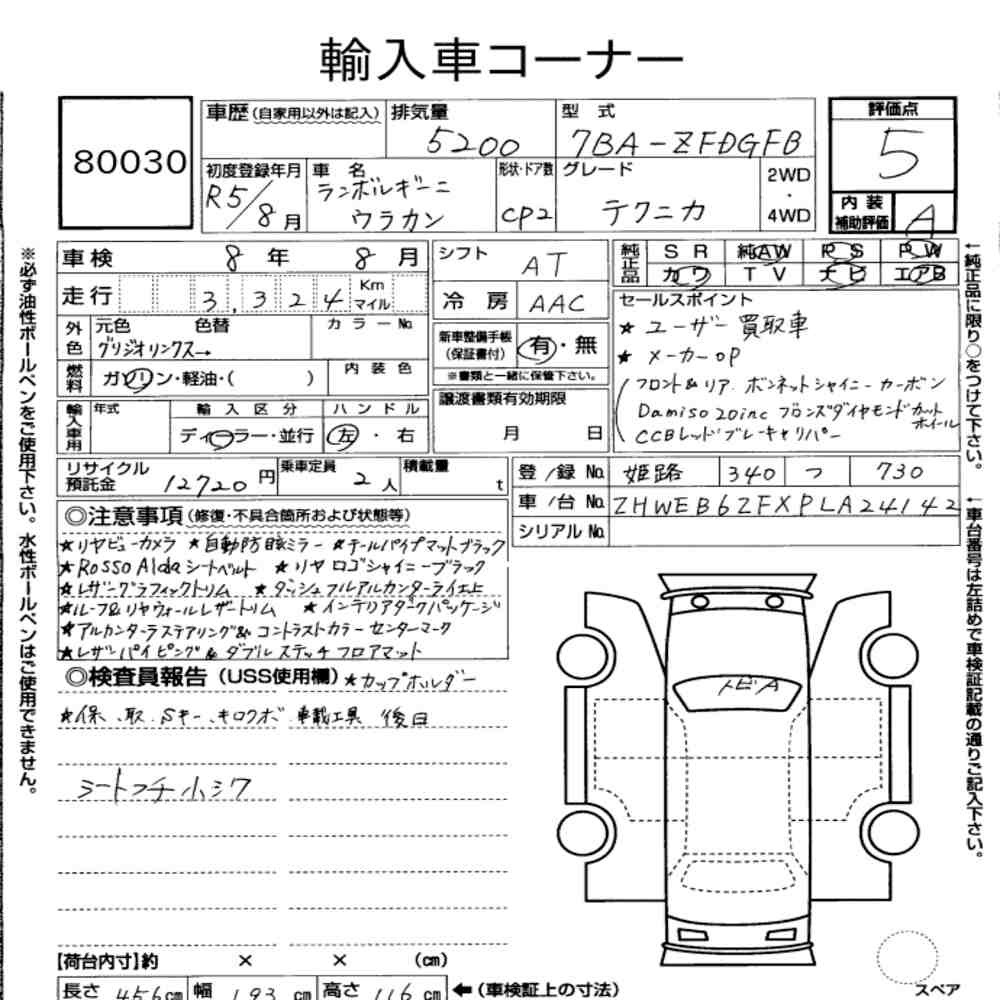 輸入車コーナー
80030
車歴(自家用以外は記入)
排気量
5200
型 式
7BA-ZFDGFB
評価点
5
内装
補助評価
A
初度登録年月
R5/8月
車 名
ランボルギーニ
ウラカン
形状・ドア数
CP2
グレード
テクニカ
2WD
・
4WD
車検 8年 8月
シフト
AT
純正品
SR 純AW PS PW
カワ TV ナビ エアB
走行 3,324 Km
マイル
冷房 AAC
セールスポイント
★ユーザー買取車
★メーカーOP
フロント&リア.ボンネットシャイニーカーボン
Damiso 20inc ブロンズダイヤモンドカット
ホイール
CCBレッドブレーキキャリパー
外色
元色 色替
グリジオリンクス→
カラーNo.
新車整備手帳
(保証書付)
有・無
※書類と一緒に保管下さい。
燃料
ガソリン・軽油・( )
内装色
譲渡書類有効期限
月 日
輸入車用
年式
輸入区分
ディーラー・並行
ハンドル
左・右
リサイクル
預託金
12720円
乗車定員
2人
積載量
t
登/録No. 姫路 340 つ 730
車/台No. ZHWEB6ZFXPLA24142
シリアルNo.
◎注意事項(修復・不具合箇所および状態等)
★リヤビューカメラ ★自動防眩ミラー ★テールパイプマットブラック
★Rosso Alda シートベルト ★リヤロゴシャイニーブラック
★レザーグラフィックトリム ★ダッシュフルアルカンターライエ上
★ルーフ&リヤウォールレザートリム ★インテリアダークパッケージ
★アルカンターラステアリング& コントラストカラーセンターマーク
★レザーパイピング&ダブルステッチフロアマット
◎検査員報告(USS使用欄) ★カップホルダー
★保.取.Sキー.キロクボ.車載工具 後日
シートフチ小シワ
トビA
【荷台内寸】約 × × (cm)
長さ 456cm 幅 193cm 高さ 116cm
←(車検証上の寸法)
スペア
※必ず油性ボールペンをご使用下さい。水性ボールペンはご使用できません。
←純正品に限り○をつけて下さい。
←車台番号は左詰めで車検証記載の通りご記入下さい。